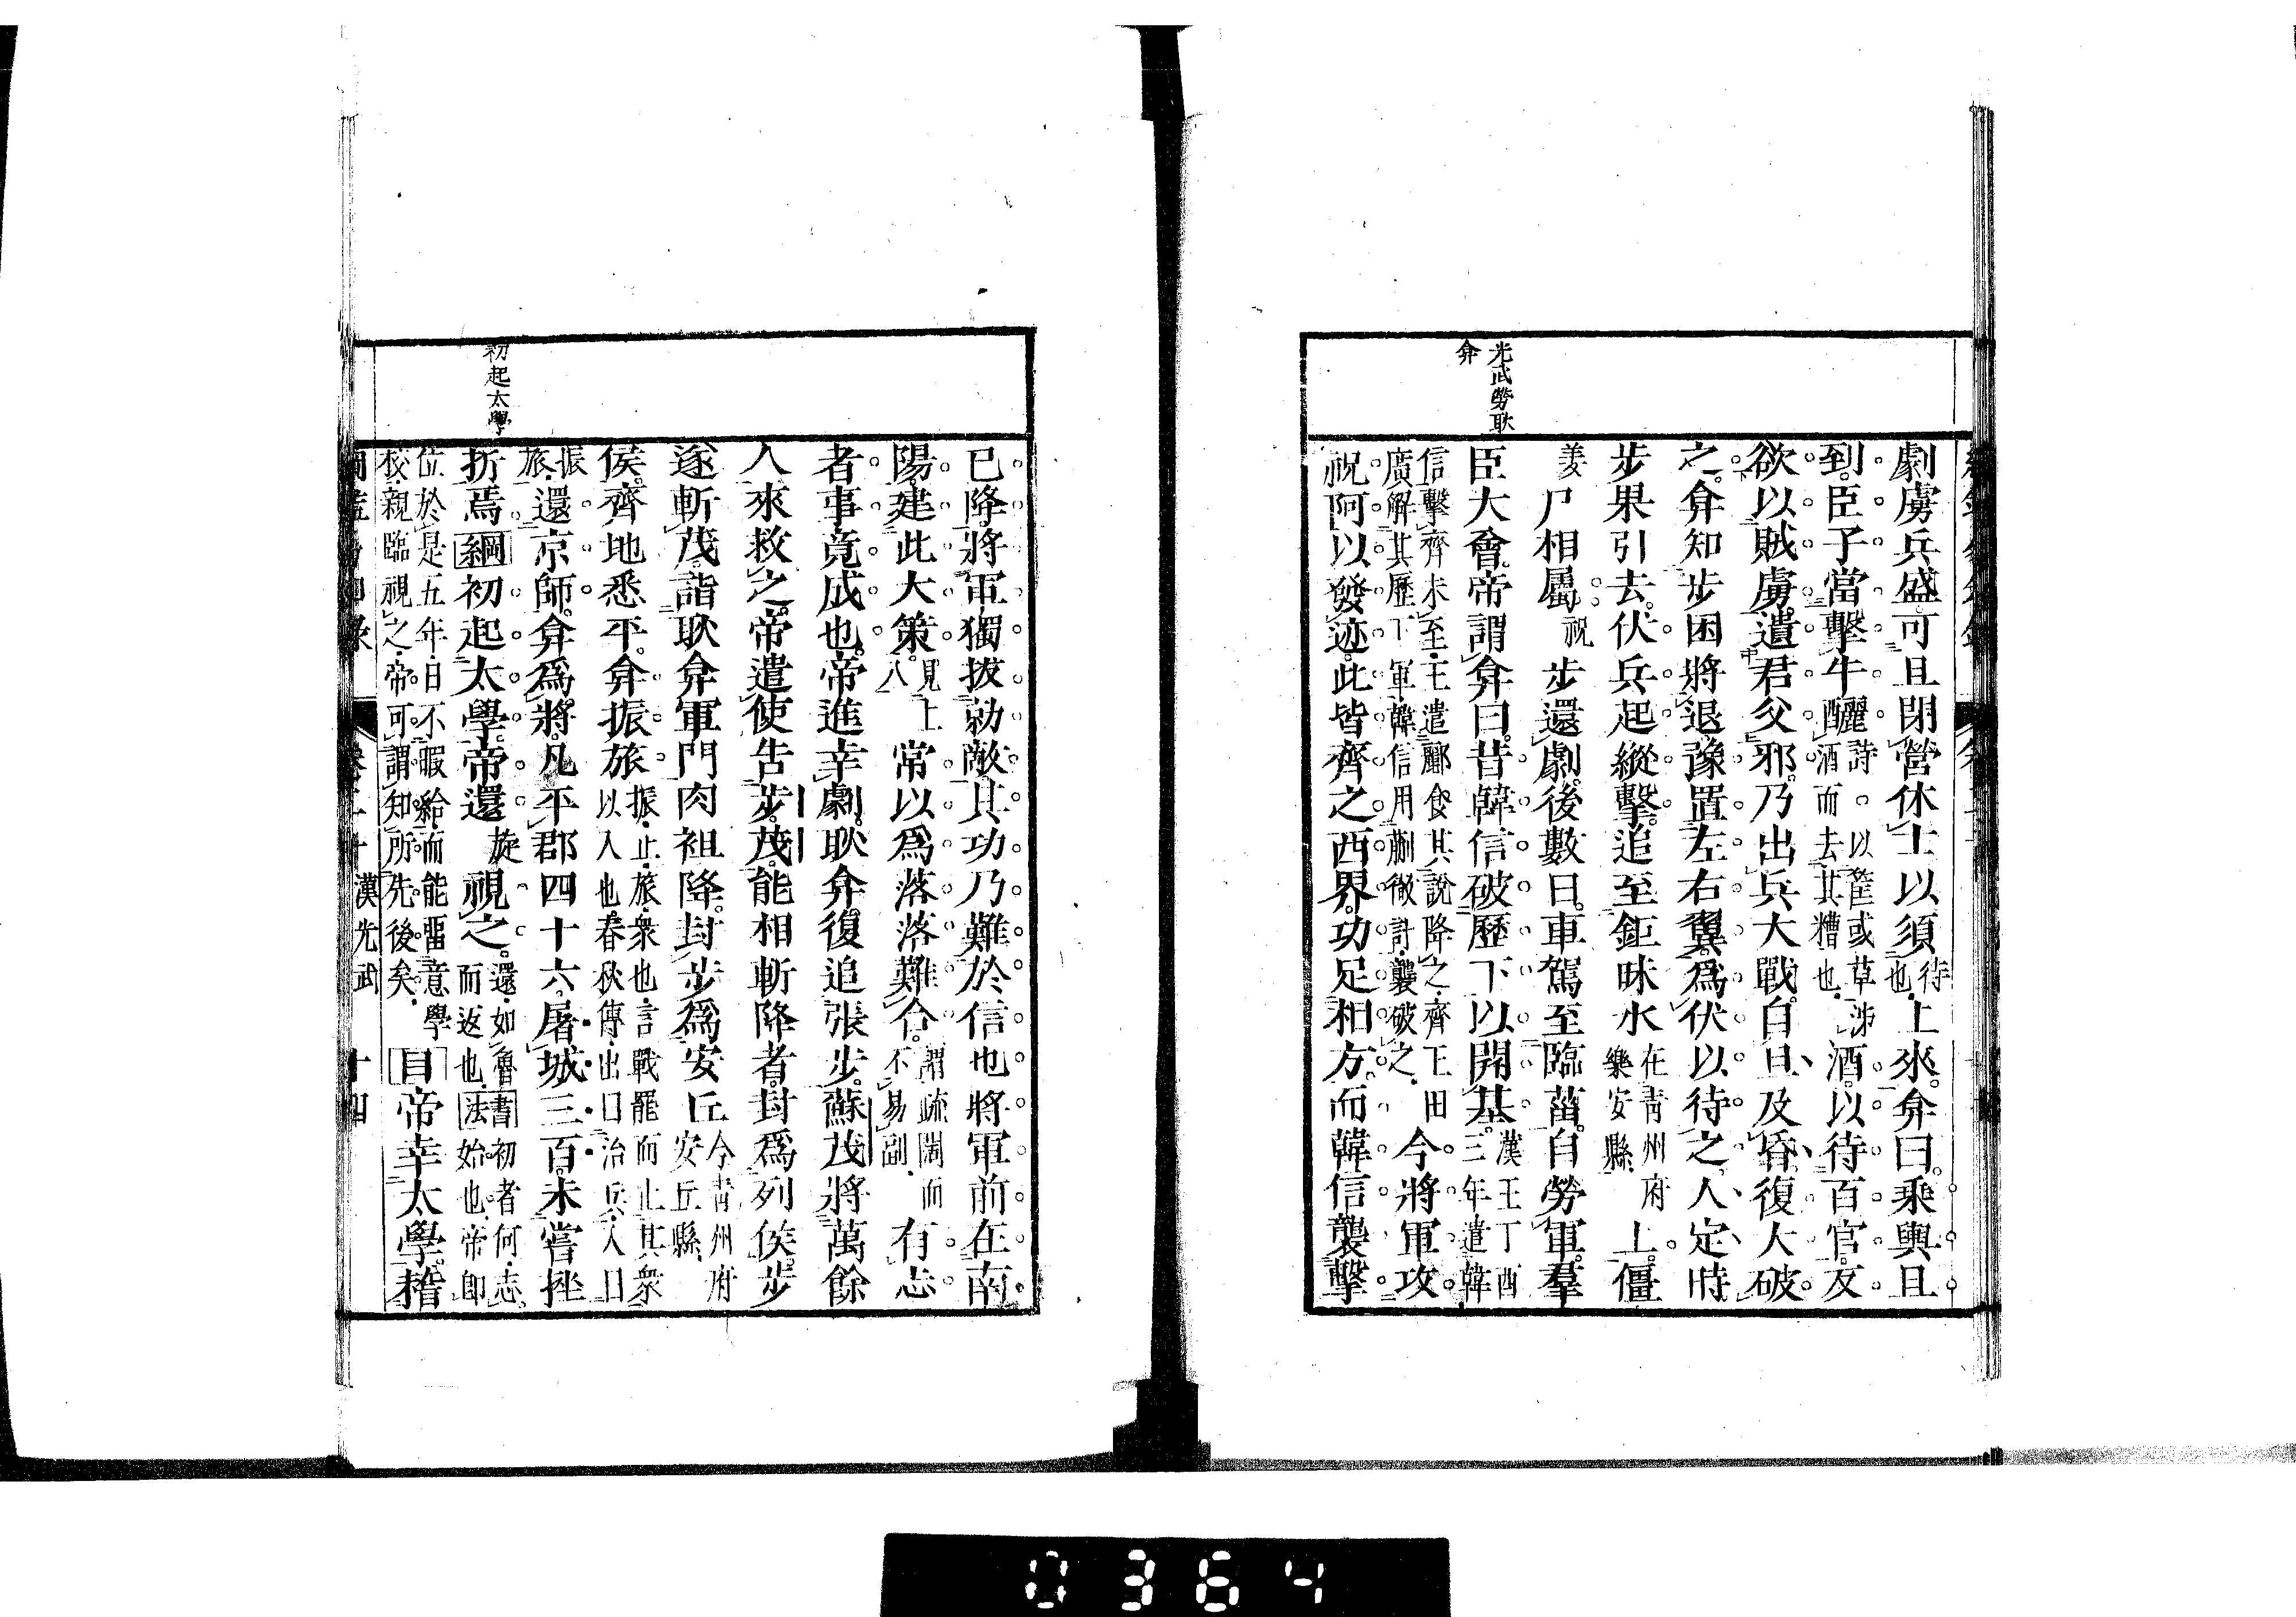 光武勞耿
弇
劇虜兵盛可且閉營休士以須待也上來弇曰乘輿且
到臣子當擊牛釃詩以筐或草泲酒而去其糟也酒以待百官反
欲以賊虜遺君父邪乃出兵大戰自旦及昏復大破
之弇知步困將退豫置左右翼爲伏以待之人定時
步果引去伏兵起縱擊追至鉅昧水在青州府樂安縣上僵
姜尸相屬祝步還劇後數日車駕至臨菑自勞軍羣
臣大會帝謂弇曰昔韓信破歷下以開基漢王丁酉三年遣韓
信擊齊未至王遣酈食其說降之齊王田廣解其歷下軍韓信用蒯徹計襲破之今將軍攻
祝阿以發迹此皆齊之西界功足相方而韓信襲擊
初起太學
已降將軍獨拔勍敵其功乃難於信也將軍前在南
陽建此大策見上八常以爲落落難合謂疏闊而不易副有志
者事竟成也帝進幸劇耿弇復追張步蘇茂將萬餘
人來救之帝遣使吿步茂能相斬降者封爲列侯步
遂斬茂詣耿弇軍門肉袒降封步爲安丘今青州府安丘縣
侯齊地悉平弇振旅振止旅衆也言戰罷而止其衆以入也春秋傳出曰治兵入曰
振旅還京師弇爲將凡平郡四十六屠城三百未嘗挫
折焉綱初起太學帝還旋視之還如魯而返也書法初者何志始也帝卽
位於是五年日不暇給而能畱意學校親臨視之帝可謂知所先後矣目帝幸太學稽
漢光武 十四